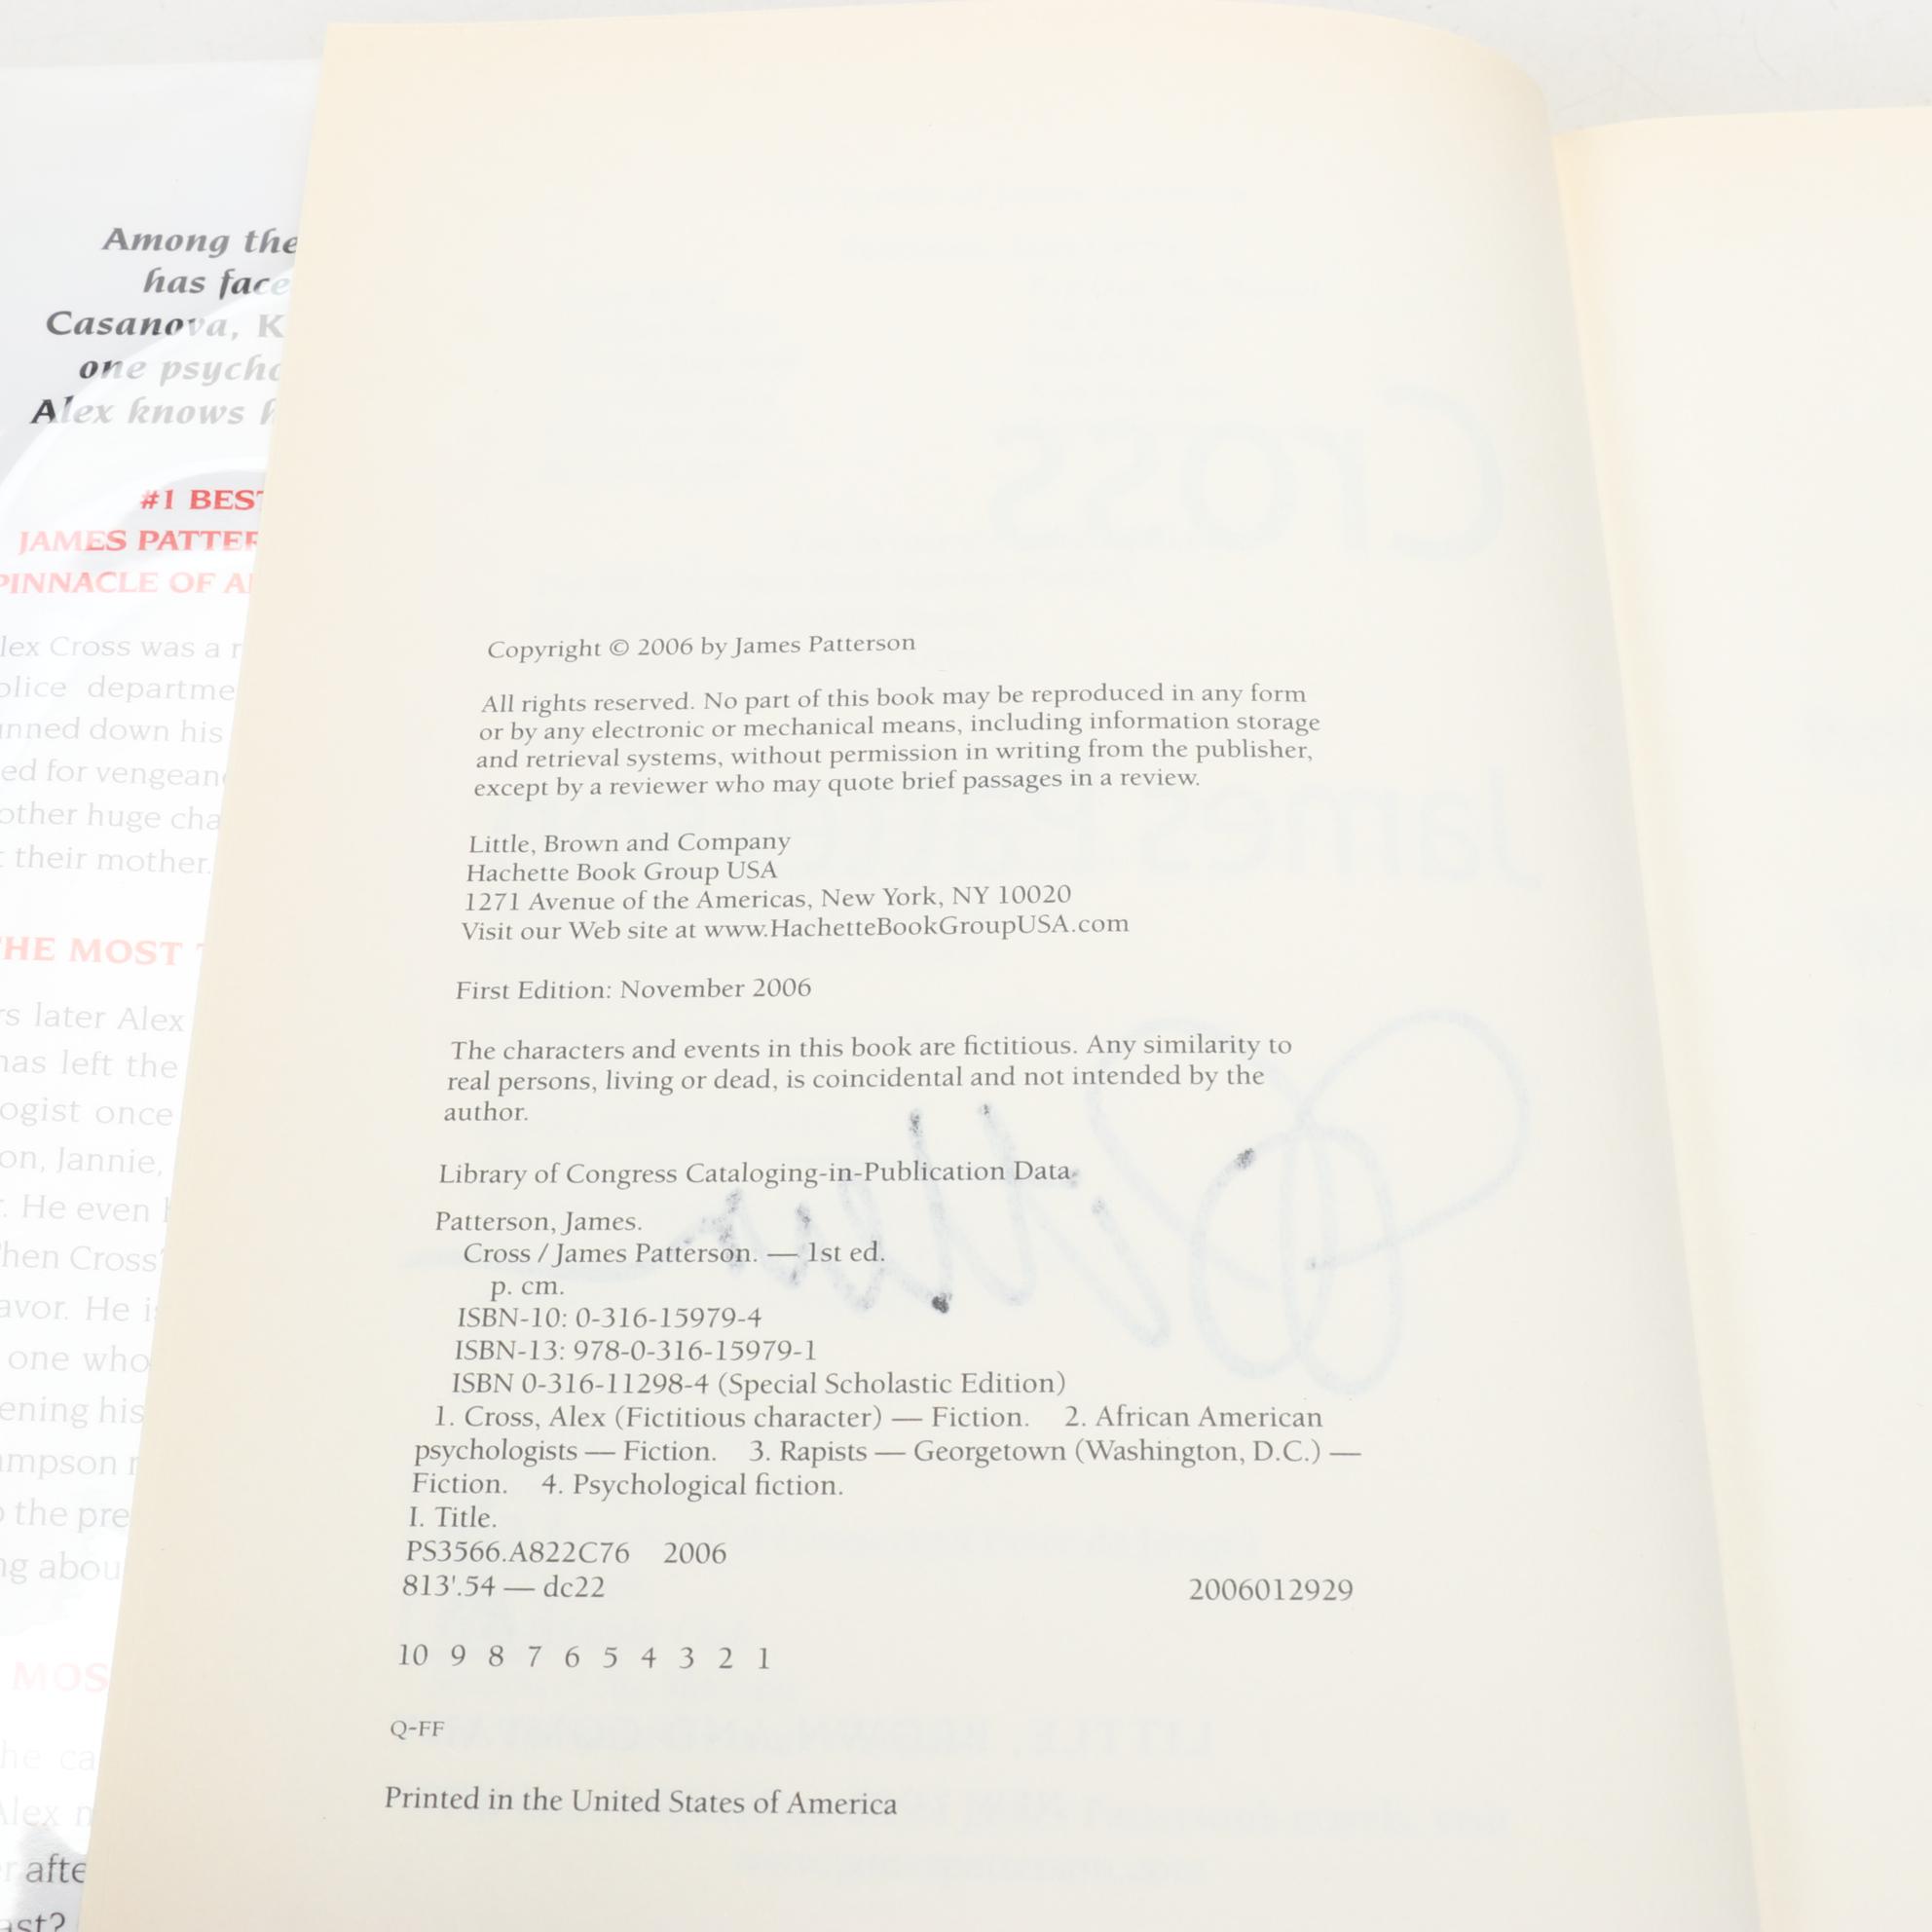 Among the
has face
Casanova, K
one psycho
Alex knows h
#1 BEST
JAMES PATTER
PINNACLE OF A
lex Cross was a r
olice departme
nned down his
ed for vengean
other huge cha
t their mother.
THE MOST
rs later Alex
has left the
ogist once
on, Jannie,
. He even
hen Cross'
avor. He i
one who
ening his
mpson
o the pre
ng abou
MOS
he ca
Alex
r afte
ast?
Copyright © 2006 by James Patterson
All rights reserved. No part of this book may be reproduced in any form
or by any electronic or mechanical means, including information storage
and retrieval systems, without permission in writing from the publisher,
except by a reviewer who may quote brief passages in a review.
Little, Brown and Company
Hachette Book Group USA
1271 Avenue of the Americas, New York, NY 10020
Visit our Web site at www.HachetteBookGroupUSA.com
First Edition: November 2006
The characters and events in this book are fictitious. Any similarity to
real persons, living or dead, is coincidental and not intended by the
author.
Library of Congress Cataloging-in-Publication Data
Patterson, James.
Cross / James Patterson. — 1st ed.
p. cm.
ISBN-10: 0-316-15979-4
ISBN-13: 978-0-316-15979-1
ISBN 0-316-11298-4 (Special Scholastic Edition)
1. Cross, Alex (Fictitious character) — Fiction. 2. African American
psychologists — Fiction. 3. Rapists — Georgetown (Washington, D.C.) —
Fiction. 4. Psychological fiction.
I. Title.
PS3566.A822C76 2006
813'.54 — dc22 2006012929
10 9 8 7 6 5 4 3 2 1
Q-FF
Printed in the United States of America